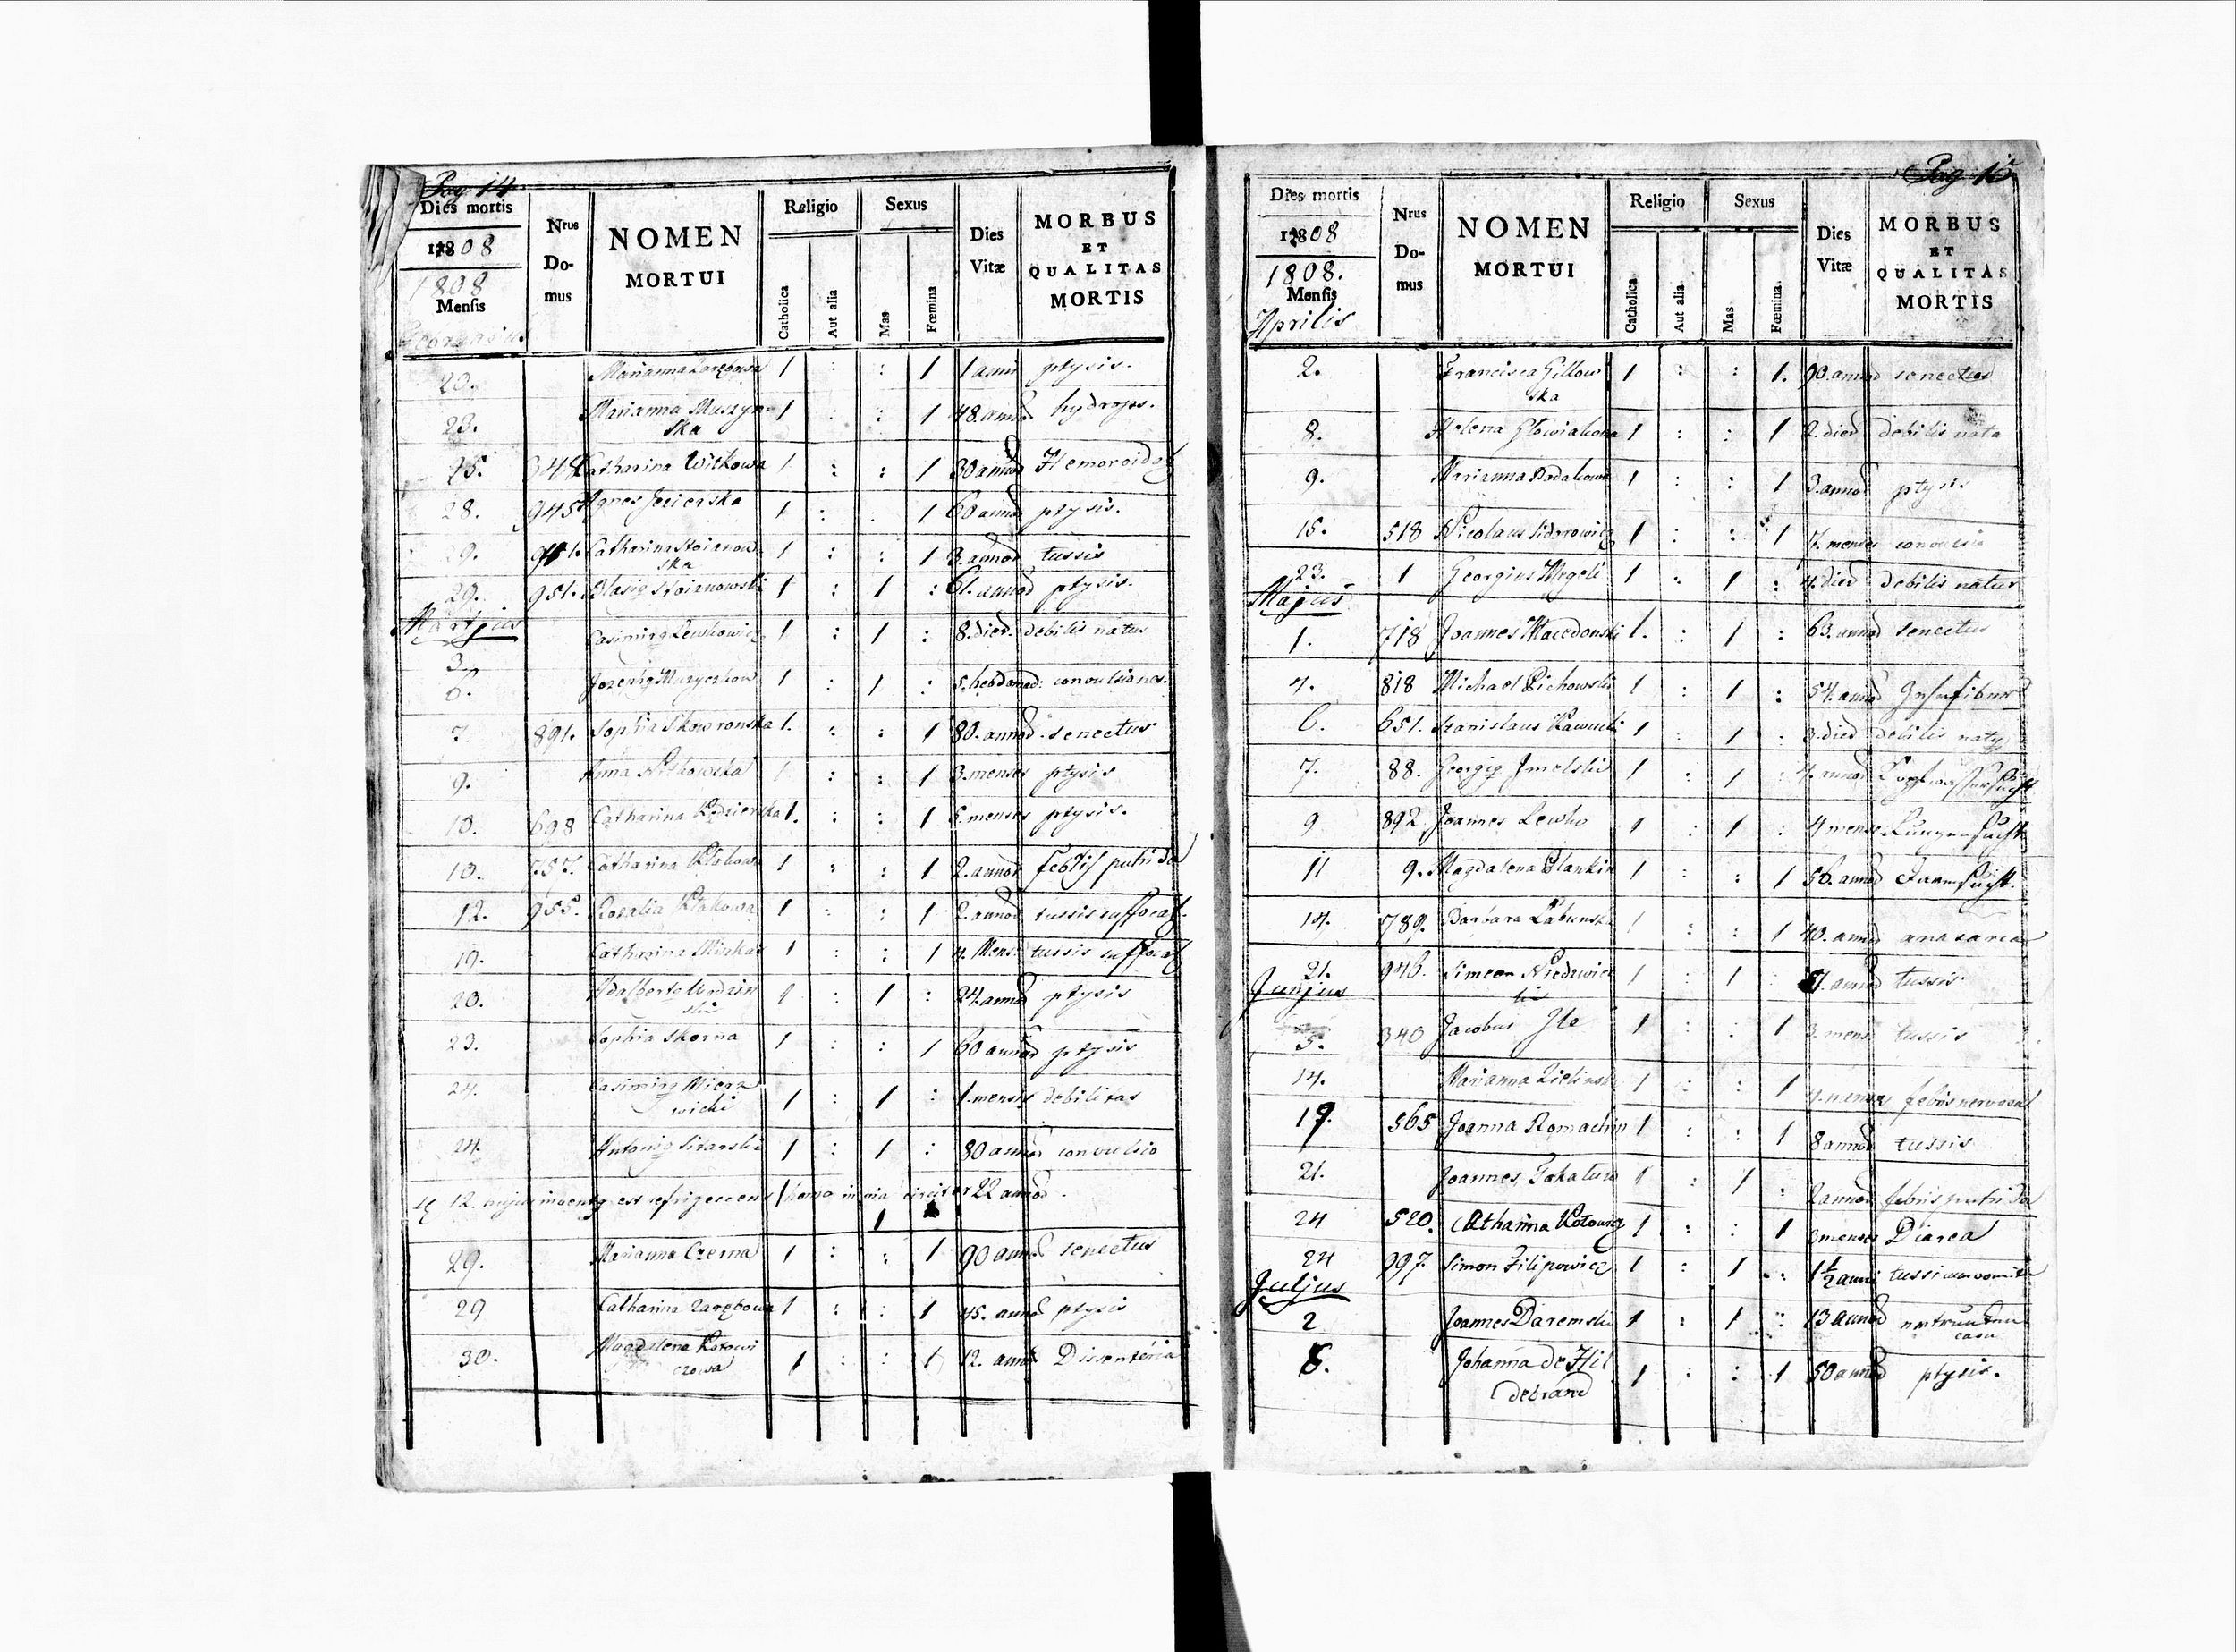 Pag 14
Dies mortis
1808
1808
Mensis
Nrus Do-mus
NOMEN
MORTUI
Religio
Catholica
Aut alia
Sexus
Mas
Fœmina
Dies
Vitæ
MORBUS
ET
QUALITAS
MORTIS
20. Marianna 1 : : 1 1 anni ptysis.
23. Marianna Muszyn 1 : : 1 48. annod hydrops.
ska
25. 348 Catharina Witkowa 1 : : 1 30 annod Hemoroidal
28. 945 Agnes Jezierska 1 : : 1 60 annod ptysis.
29. 951. Catharina Stoianow 1 : : 1 3. annod tussis
ska
29. 951. Blasig Stoianowski 1 : 1 : 61. annod ptysis.
Martjus
3. Casimirg Lewkowicz 1 : 1 : 8. died. debilis natus
6. 1 : 1 : 5. hebdomad: convulsiones.
7. 891. Sophia Skowronska 1. : : 1 80. annod. senectus
9. Anna Witkowska 1 : : 1 3. menses ptysis
10. 698 Catharina 1. : : 1 5. menses ptysis.
10. 757. Catharina 1 : : 1 2. annod febris putrida
12. 955. Rosalia 1 : : 1 2. annod tussis suffocat.
19. Catharina 1 : : 1 4. Mens: tussis suffocat
20. Adalbertg Wodzin 1 : 1 : 24. annod ptysis
ski
23. Sophia Skorna 1 : : 1 60 annod ptysis
24. Casimirg Mierz
wicki 1 : 1 : 1. mensis debilitas
24. Antonig Sitarski 1 : 1 : 80 annod convulsio
12. hujus inventg est refrigescens homo in via circiter 22 annod.
1
29. Marianna Czerna 1 : : 1 90 annod senectus
29 Catharina Zarębowa 1 : : 1 45. annod ptysis
30. Magdalena Kotowi
czowa 1 : : 1 12. annod Dissenteria
Pag 15
Dies mortis
1808
1808.
Mensis
Aprilis
Nrus Do-mus
NOMEN
MORTUI
Religio
Catholica
Aut alia
Sexus
Mas
Fœmina
Dies
Vitæ
MORBUS
ET
QUALITAS
MORTIS
2. Francisca Gillow 1 : : 1. 90. annod senectus
ska
8. Helena 1 : : 1 2. died debilis nata
9. Marianna 1 : : 1 3. annod ptysis
15. 518 Nicolaus Sidorowicz 1 : : 1 7. menses convulsio
23. 1 Georgius 1 : 1 : 4. died debilis natus
Majus
1. 718 Joannes Macedonski 1. : 1 : 63. annod senectus
4. 818 Michael Cichowski 1 : 1 : 54. annod
6. 651. Stanislaus 1 : 1 : 3. died debilis natg
7. 88. Georgig 1 : 1 : 4. annod Kopfwassersucht
9 892. Joannes Lewko 1 : 1 : 4 mense Lungensucht
11 9. Magdalena Blankin 1 : : 1 56. annod
14. 789. Barbara Labunsk 1 : : 1 40. annod anasarca
21. 946. Simeon Niedzwiec 1 : 1 : annod tussis
ki
Junjus
5. 340 Jacobus 1 : : 1 3. mens tussis
14. Marianna Zielinsk 1 : : 1 menses febris nervosa
19. 565 Joanna 1 : : 1 8 annod tussis
21. Joannes 1 : 1 : 2 annod. febris putrida
24 520. Catharina 1 : : 1 3 menses Diarea
24 997. Simon Filipowicz 1 : 1 : 1½ anni tussi cum vomitu
Juljus
2 Joannes Daremski 1 : 1 : 13 annod
casu
6. Johanna de Hil
debrand 1 : : 1 50 annod ptysis.